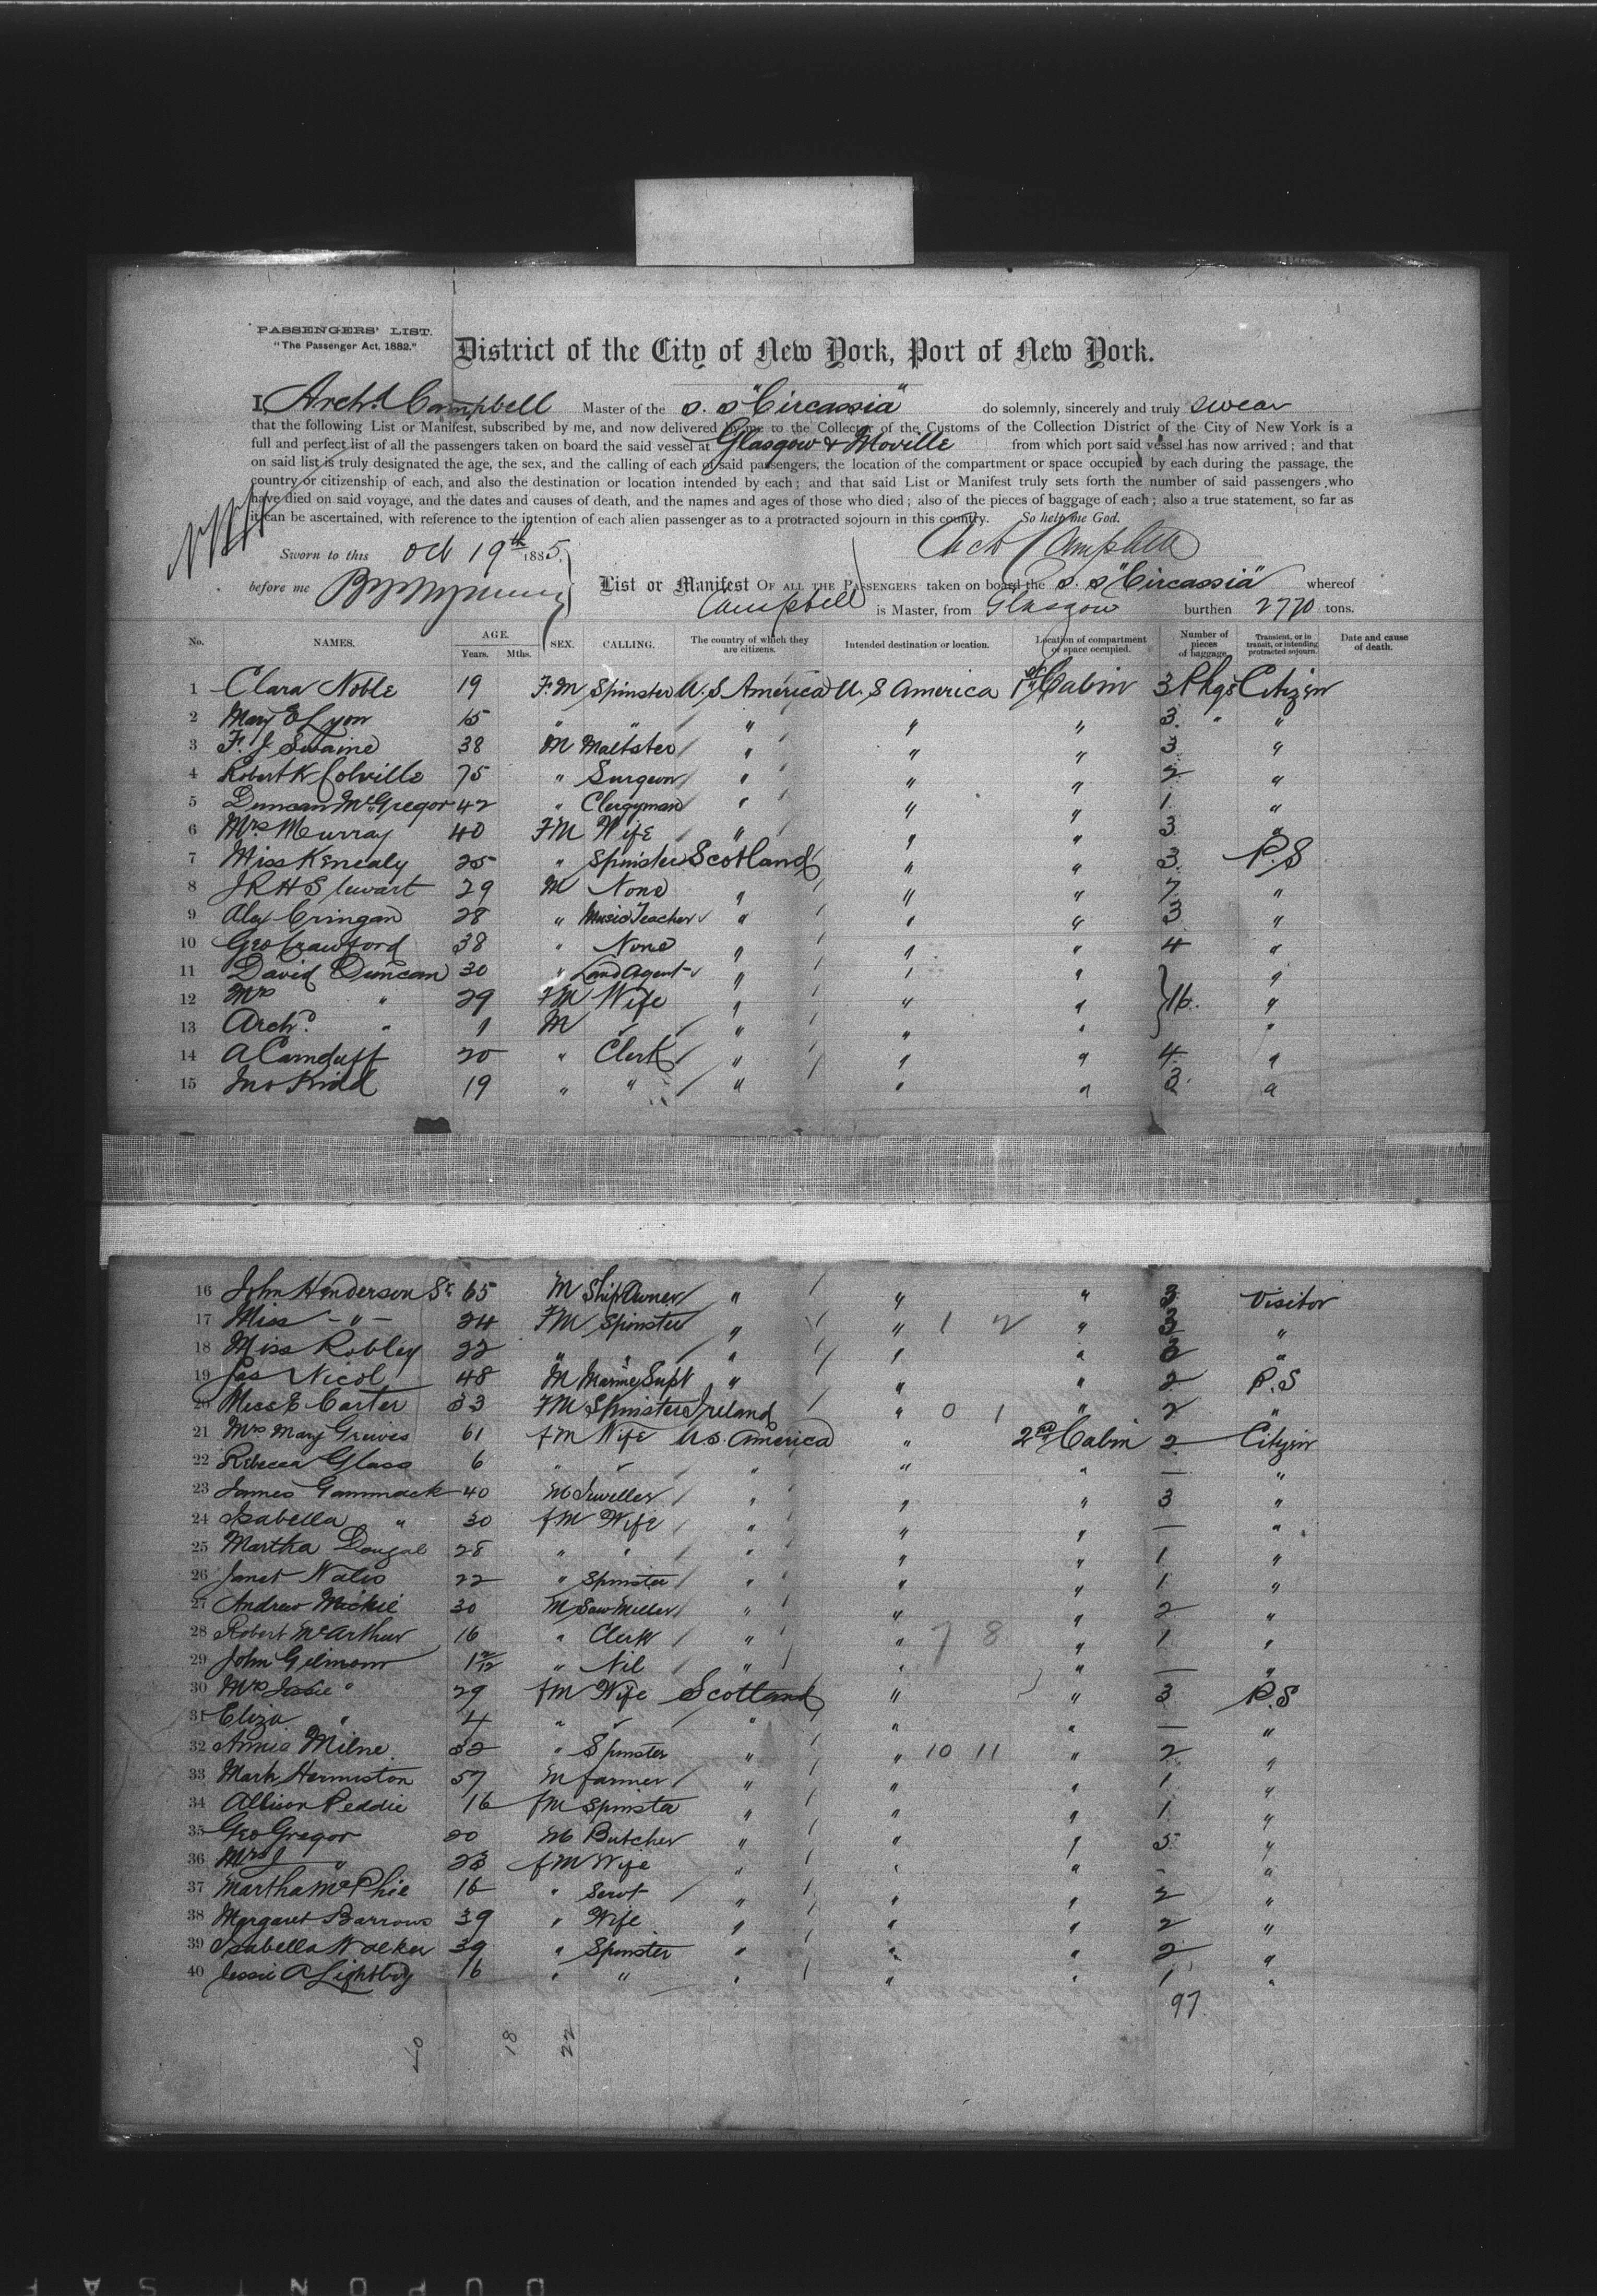 PASSENGERS' LIST.
"The Passenger Act, 1882."
District of the City of New York, Port of New York.
I, Archd. Campbell Master of the S. S "Circassia" do solemnly, sincerely and truly swear
that the following List or Manifest, subscribed by me, and now delivered by me to the Collector of the Customs of the Collection District of the City of New York is a
full and perfect list of all the passengers taken on board the said vessel at Glasgow & Moville from which port said vessel has now arrived; and that
on said list is truly designated the age, the sex, and the calling of each of said passengers, the location of the compartment or space occupied by each during the passage, the
country or citizenship of each, and also the destination or location intended by each; and that said List or Manifest truly sets forth the number of said passengers who
have died on said voyage, and the dates and causes of death, and the names and ages of those who died; also of the pieces of baggage of each; also a true statement, so far as
it can be ascertained, with reference to the intention of each alien passenger as to a protracted sojourn in this country. So help me God.
Archd Campbell
Sworn to this Oct 19th 1885
before me
List or Manifest OF ALL THE PASSENGERS taken on board the S. S "Circassia" whereof
Campbell is Master, from Glasgow burthen 2770 tons.
No. NAMES. AGE. Years. Mths. SEX. CALLING. The country of which they are citizens. Intended destination or location. Location of compartment or space occupied. Number of pieces of baggage Transient, or in transit, or intending protracted sojourn. Date and cause of death.
1 Clara Noble 19 F.M Spinster U.S America U.S America 1st Cabin 3 Pkgs Citizen
2 Mary E Lyon 15 " " " " " 3 " "
3 F. J Swaine 38 M Maltster " " " 3 "
4 Robert K Colville 75 " Surgeon " " " 2 "
5 Duncan McGregor 42 " Clergyman " " " 1 "
6 Mrs Murray 40 FM Wife " " " 3 "
7 Miss Kenealy 25 " Spinster Scotland " " 3 P.S
8 J R H Stewart 29 M None " " " 7 "
9 Alex Cringan 28 " Music Teacher " " " 3 "
10 Geo Crawford 38 " None " " " 4 "
11 David Duncan 30 " Land Agent " " " "
12 Mrs " 29 FM Wife " " " } 16 "
13 Archd. " 1 M " " " "
14 A Carnduff 20 " Clerk " " " 4 "
15 Jno Kidd 19 " " " " " 3 "
16 John Henderson Sr 65 M Ship Owner " " " 3 Visitor
17 Miss - " - 24 FM Spinster " " 1 2 " 3 "
18 Miss Robley 22 " " " " " 3 "
19 Jas Nicol 48 M Marine Supt " " " 2 P.S
20 Miss E Carter 33 FM Spinster Ireland " 0 1 " 2 "
21 Mrs Mary Greives 61 fM Wife U.S. America " 2nd Cabin 2 Citizen
22 Rebecca Glass 6 " " " " " — "
23 James Gammack 40 M Jeweller " " " 3 "
24 Isabella " 30 fM Wife " " " — "
25 Martha Dougal 28 " " " " " 1 "
26 Janet 22 " Spinster " " " 1 "
27 Andrew Mackie 30 M Saw Miller " " " 2 "
28 Robert McArthur 16 " Clerk " " 7 8 " 1 "
29 John Gilmour 1 2/12 " Nil " " " — "
30 Mrs Jessie " 29 fM Wife Scotland " " 3 P.S
31 Eliza " 4 " " " " " — "
32 Annie Milne 32 " Spinster " " 10 11 " 2 "
33 Mark Hermiston 57 M farmer " " " 1 "
34 Allison Peddie 16 fM Spinster " " " 1 "
35 Geo Gregor 20 M Butcher " " " 5 "
36 Mrs J " 23 fM Wife " " " - "
37 Martha McPhie 16 " Servt " " " 2 "
38 Margaret Barrows 39 " Wife " " " 2 "
39 Isabella Walker 39 " Spinster " " " 2 "
40 Jessie A Lightbody 16 " " " " " 1 "
97
40 18 22